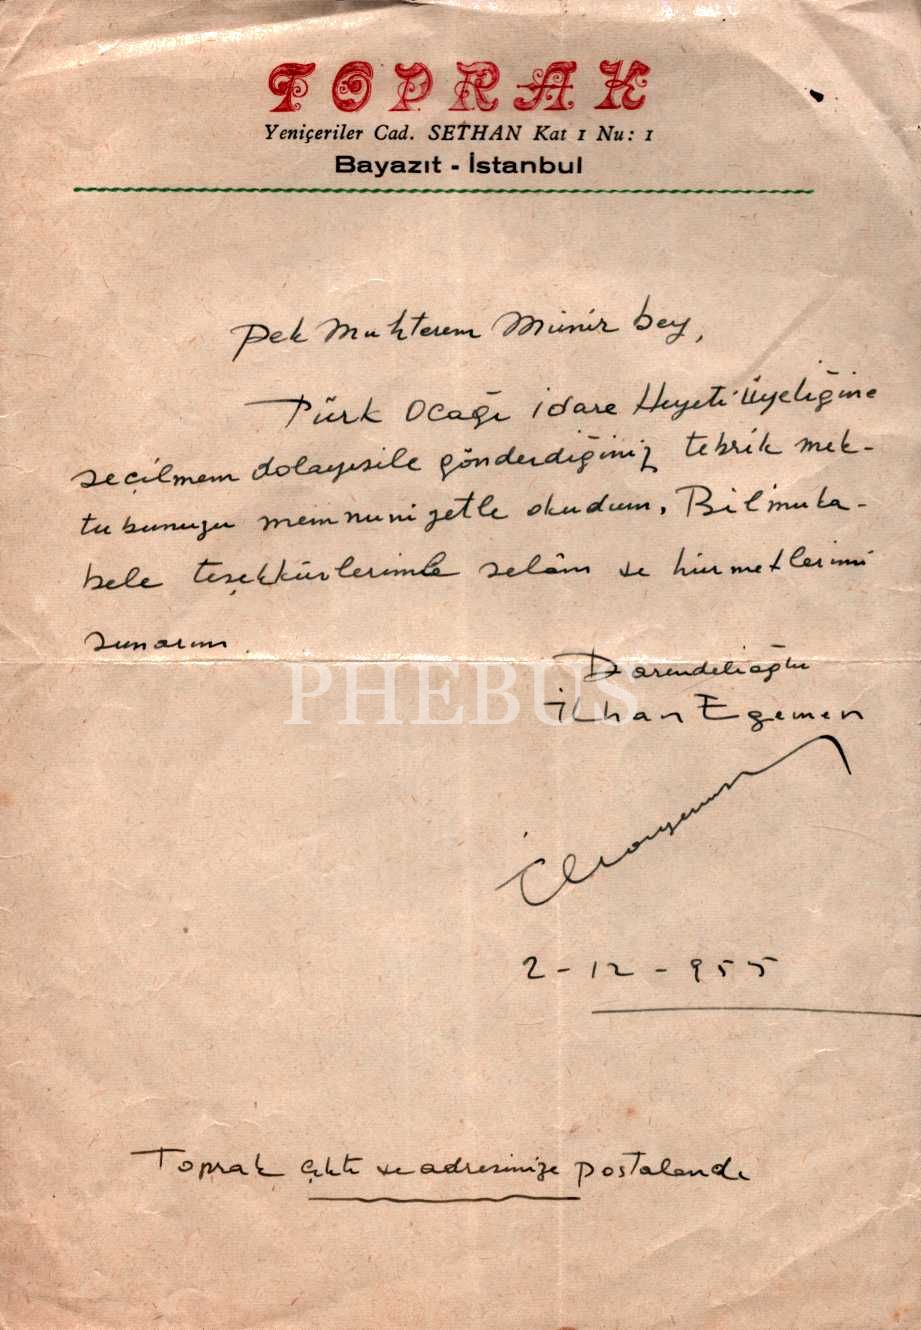 TOPRAK
Yeniçeriler Cad. SETHAN Kat 1 Nu: 1
Bayazıt - İstanbul
Pek Muhterem Münir bey,
Türk Ocağı idare Heyeti Üyeliğine
seçilmem dolayısile gönderdiğiniz tebrik mek-
tubunuzu memnuniyetle okudum. Bilmuka-
bele teşekkürlerimle selâm ve hürmetlerimi
sunarım.
Darendelioğlu
PHEBUS
İlhan Egemen
2-12-955
Toprak çıktı ve adresinize postalandı